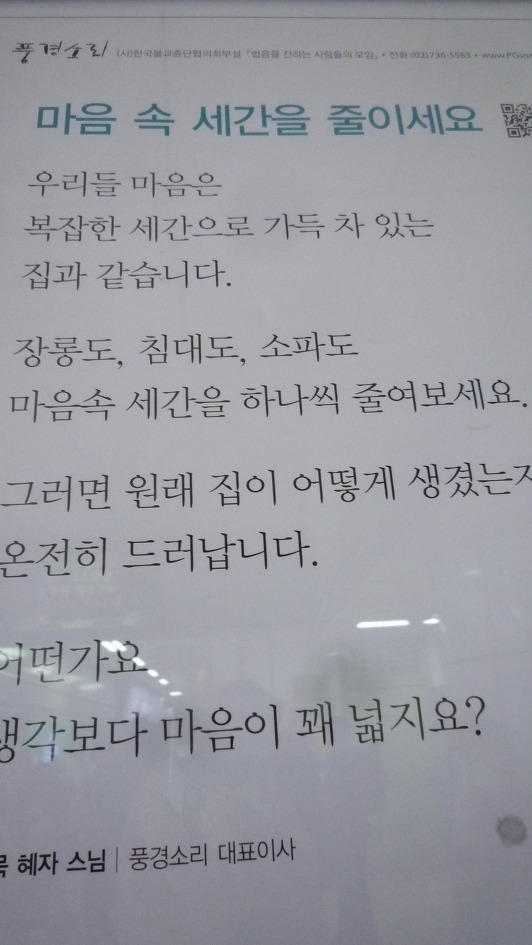 풍경소리 (사)한국불교종단협의회부설 「법음을 전하는 사람들의 모임」 • 전화:(02)736-5583 •
마음 속 세간을 줄이세요
우리들 마음은
복잡한 세간으로 가득 차 있는
집과 같습니다.
장롱도, 침대도, 소파도
마음속 세간을 하나씩 줄여보세요.
그러면 원래 집이 어떻게 생겼는지
온전히 드러납니다.
어떤가요
생각보다 마음이 꽤 넓지요?
혜자 스님 | 풍경소리 대표이사